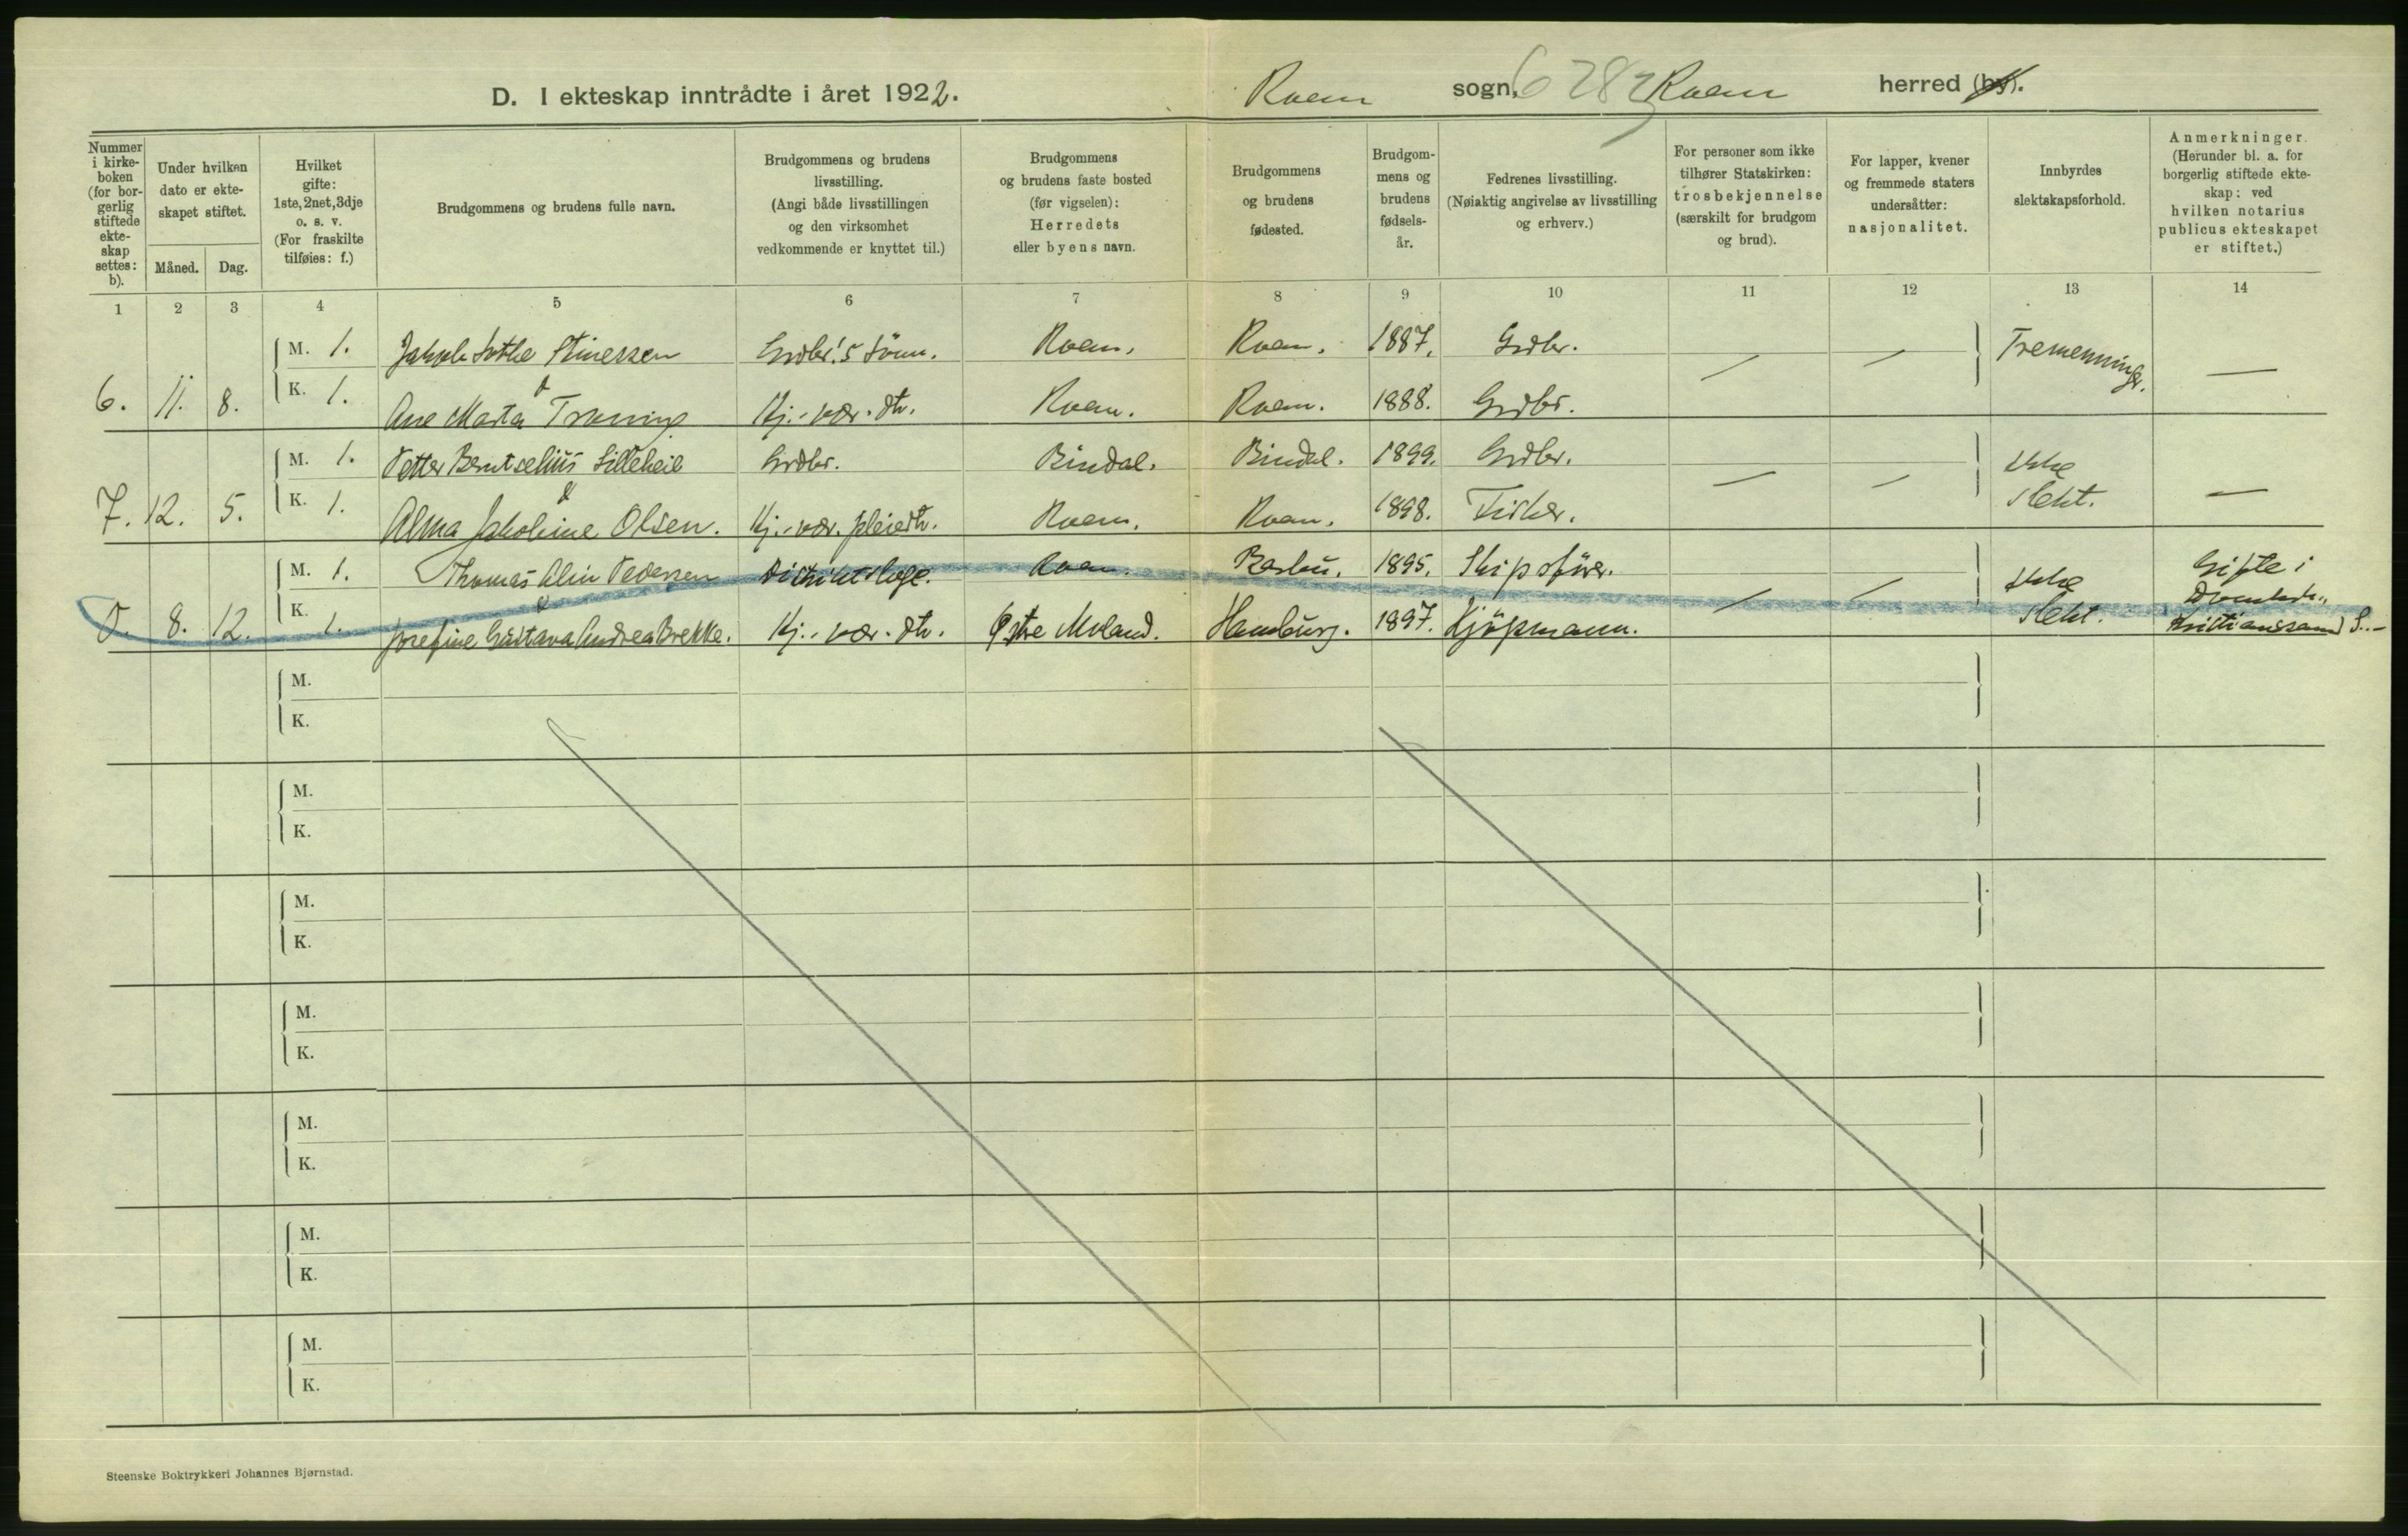 D. I ekteskap inntrådte i året 1922.
Roan sogn, 6283 Roan herred (by).
Nummer i kirke-boken (for bor-gerlig stiftede ekte-skap settes: b).
Under hvilken dato er ekte-skapet stiftet.
Måned. Dag.
Hvilket gifte: 1ste, 2net, 3dje o. s. v. (For fraskilte tilføies: f.)
Brudgommens og brudens fulle navn.
Brudgommens og brudens livsstilling. (Angi både livsstillingen og den virksomhet vedkommende er knyttet til.)
Brudgommens og brudens faste bosted (før vigselen): Herredets eller byens navn.
Brudgommens og brudens fødested.
Brudgom-mens og brudens fødsels-år.
Fedrenes livsstilling. (Nøiaktig angivelse av livsstilling og erhverv.)
For personer som ikke tilhører Statskirken: trosbekjennelse (særskilt for brudgom og brud).
For lapper, kvener og fremmede staters undersåtter: nasjonalitet.
Innbyrdes slektskapsforhold.
Anmerkninger. (Herunder bl. a. for borgerlig stiftede ekte-skap: ved hvilken notarius publicus ekteskapet er stiftet.)
1 2 3 4 5 6 7 8 9 10 11 12 13 14
M. 1. Jakob Sothe Stinessen Grdbr.'s sönn. Roan. Roan. 1887. Grdbr. — — Tremenninger. —
&
6. 11. 8. K. 1. Ane Marta Kj.-vær. dtr. Roan. Roan. 1888. Grdbr.
M. 1. Petter Berntselius Lilleheil Grdbr. Bindal. Bindal. 1899. Grdbr. — — Ikke slekt. —
&
7. 12. 5. K. 1. Alma Jakobine Olsen. Kj.-vær. pleiedtr. Roan. Roan. 1898. Fisker.
M. 1. Thomas Alin Pedersen Distriktslæge. Roan. Barbu. 1895. Skipsfører. — — Ikke slekt. Gifte i Domk. Kristianssand S.-
&
0. 8. 12. K. 1. Josefine Gustava Andrea Brekke. Kj.-vær. dtr. Østre Moland. Hamburg. 1897. Kjöpmann.
M.
K.
M.
K.
M.
K.
M.
K.
M.
K.
M.
K.
M.
K.
Steenske Boktrykkeri Johannes Bjørnstad.